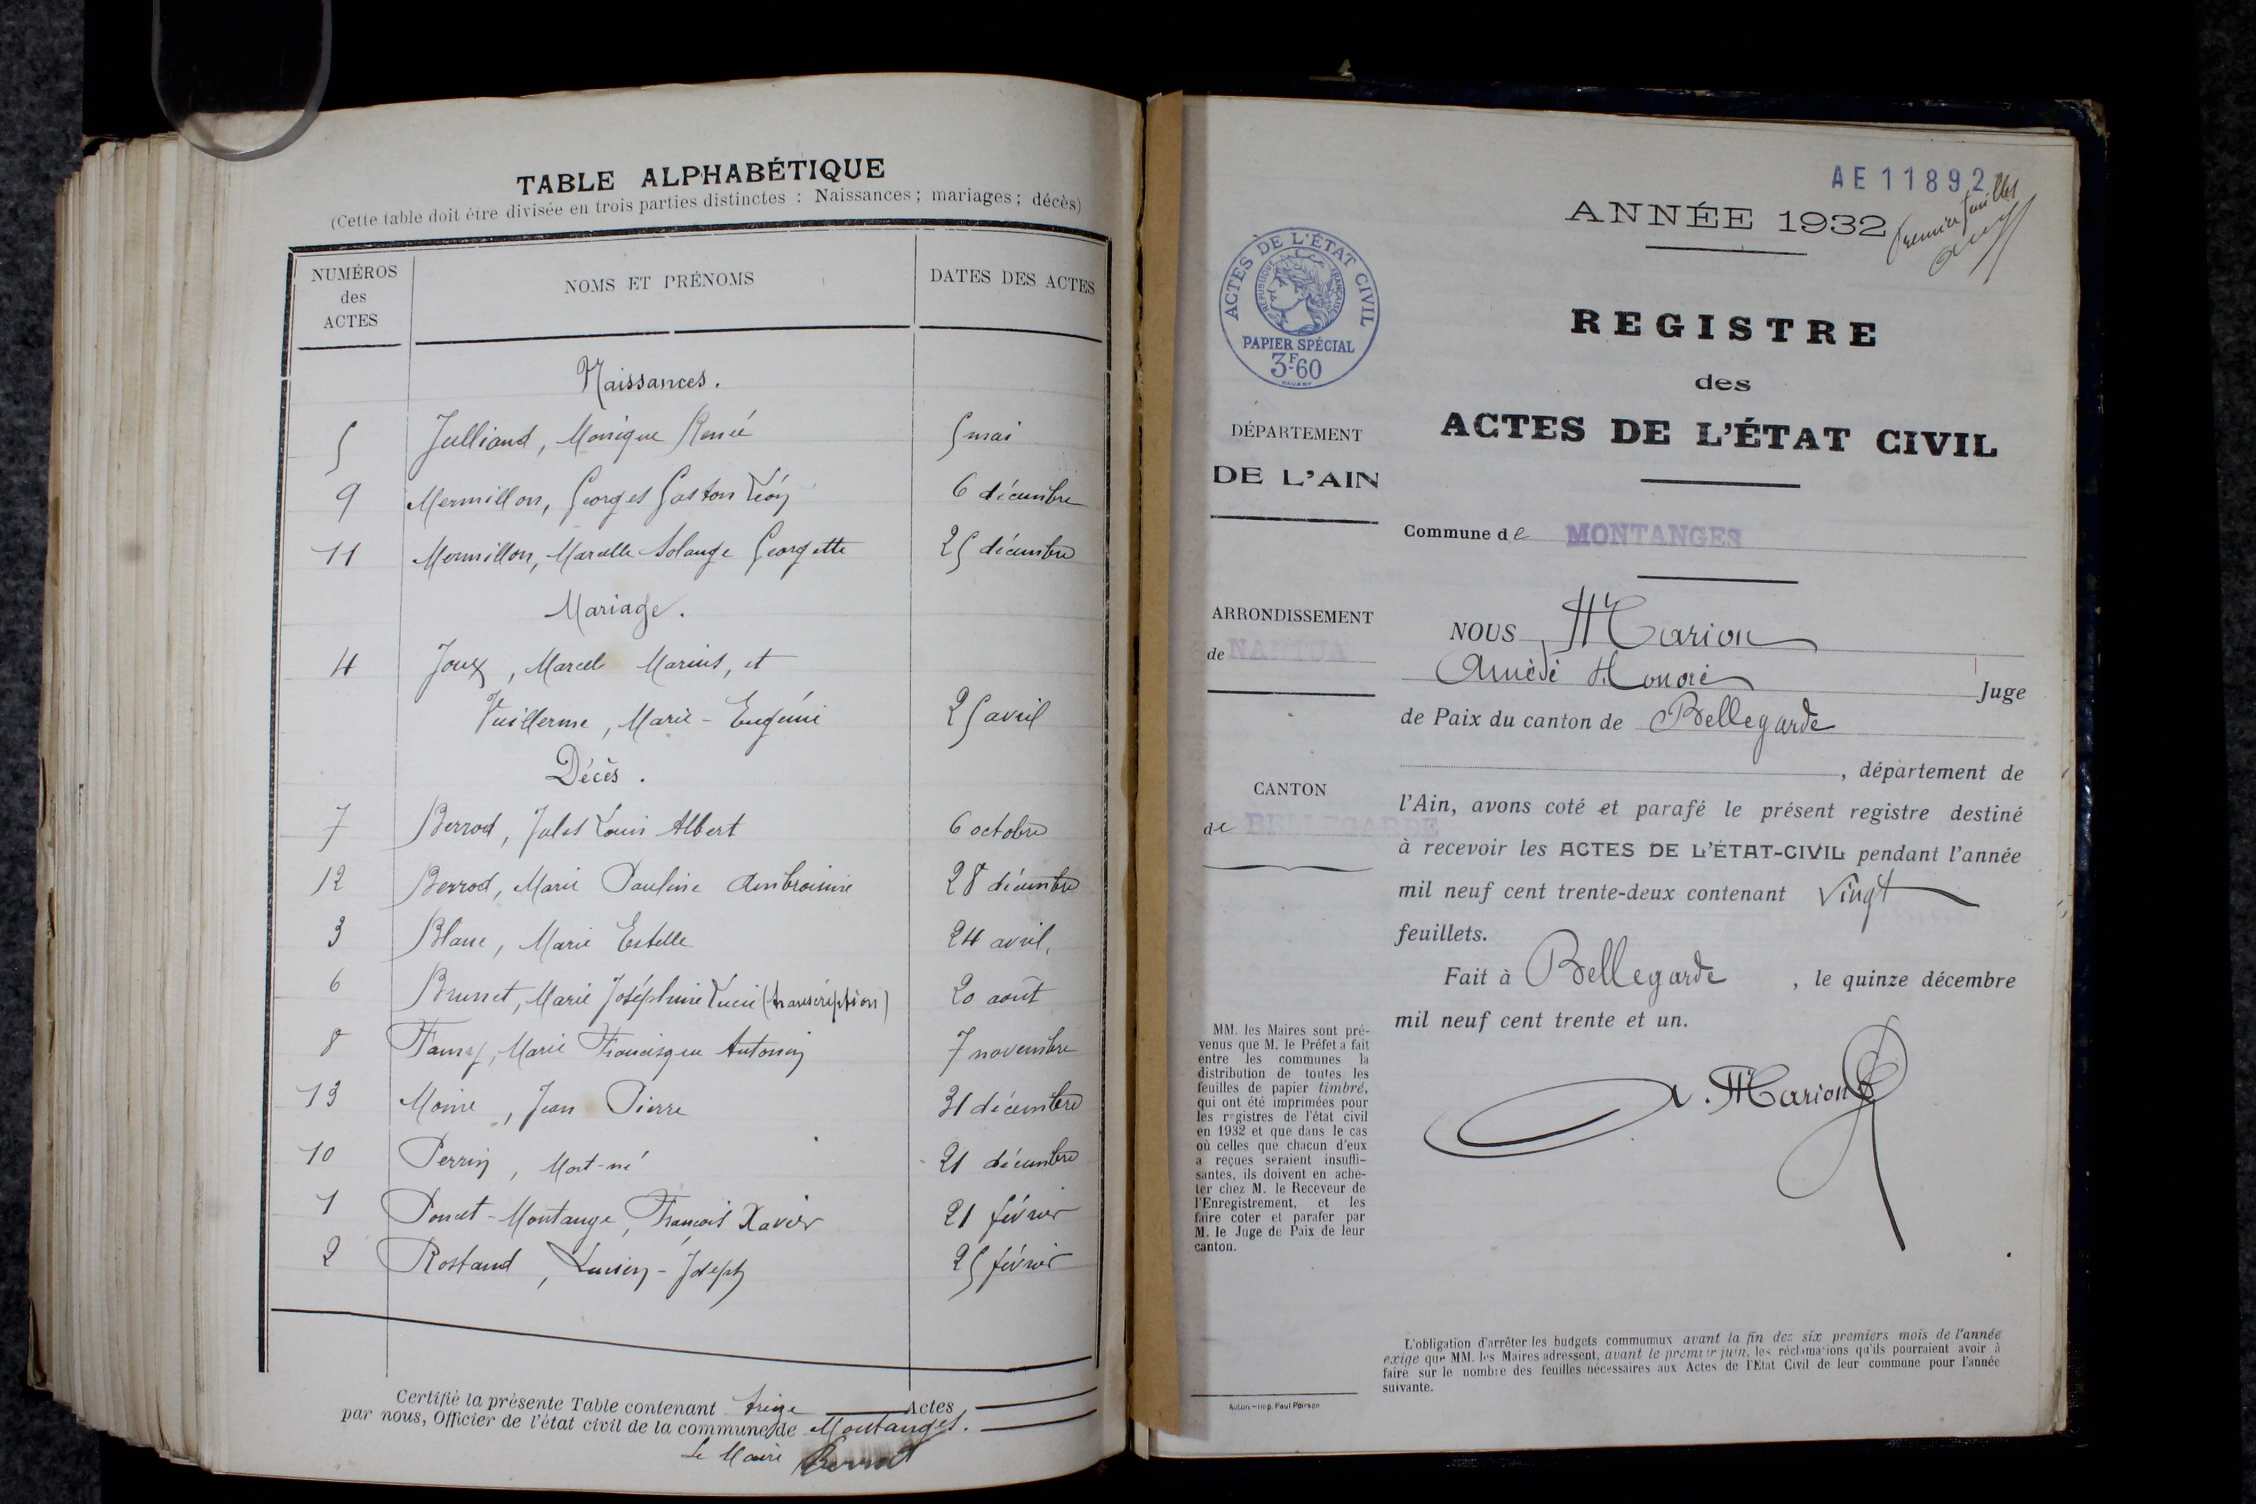 TABLE ALPHABÉTIQUE
(Cette table doit être divisée en trois parties distinctes : Naissances ; mariages ; décès)
NUMÉROS des ACTES NOMS ET PRÉNOMS DATES DES ACTES
Naissances.
5 Julliand, Monique Renée 5 mai
9 Mermillon, Georges Gaston Léon 6 décembre
11 Mermillon, Marcelle Solange Georgette 25 décembre
Mariage.
4 Joux, Marcel Marius, et
Vuillerme, Marie-Eugénie 25 avril
Décès.
7 Berrod, Jules Louis Albert 6 octobre
12 Berrod, Marie Pauline Ambroisine 28 décembre
3 Blanc, Marie Estelle 24 avril.
6 Brunet, Marie Joséphine Lucie (transcription) 20 août
8 Famy, Marie Francisque Antonin 7 novembre
13 Moine, Jean Pierre 31 décembre
10 Perrin, Mort-né 21 décembre
1 Poncet-Montange, François Xavier 21 février
2 Rostand, Lucien-Joseph 25 février
Certifié la présente Table contenant treize Actes
par nous, Officier de l'état civil de la commune de Montanges.
Le Maire Berrod
AE 11892
Première feuillet
ANNÉE 1932
ACTES DE L'ÉTAT CIVIL
RÉPUBLIQUE FRANÇAISE
PAPIER SPÉCIAL
3F60
REGISTRE
des
ACTES DE L'ÉTAT CIVIL
DÉPARTEMENT
DE L'AIN
Commune de MONTANGES
ARRONDISSEMENT
de NANTUA
CANTON
de BELLEGARDE
NOUS Marion
Amédé Honoré Juge
de Paix du canton de Bellegarde
, département de
l'Ain, avons coté et parafé le présent registre destiné
à recevoir les ACTES DE L'ÉTAT-CIVIL pendant l'année
mil neuf cent trente-deux contenant Vingt
feuillets.
Fait à Bellegarde, le quinze décembre
mil neuf cent trente et un.
A. Marion
MM. les Maires sont pré-
venus que M. le Préfet a fait
entre les communes la
distribution de toutes les
feuilles de papier timbré,
qui ont été imprimées pour
les registres de l'état civil
en 1932 et que dans le cas
où celles que chacun d'eux
a reçues seraient insuffi-
santes, ils doivent en ache-
ter chez M. le Receveur de
l'Enregistrement, et les
faire coter et parafer par
M. le Juge de Paix de leur
canton.
L'obligation d'arrêter les budgets communaux avant la fin des six premiers mois de l'année
exige que MM. les Maires adressent, avant le premier juin, les réclamations qu'ils pourraient avoir à
faire sur le nombre des feuilles nécessaires aux Actes de l'Etat Civil de leur commune pour l'année
suivante.
Autun — Imp. Paul Poirson